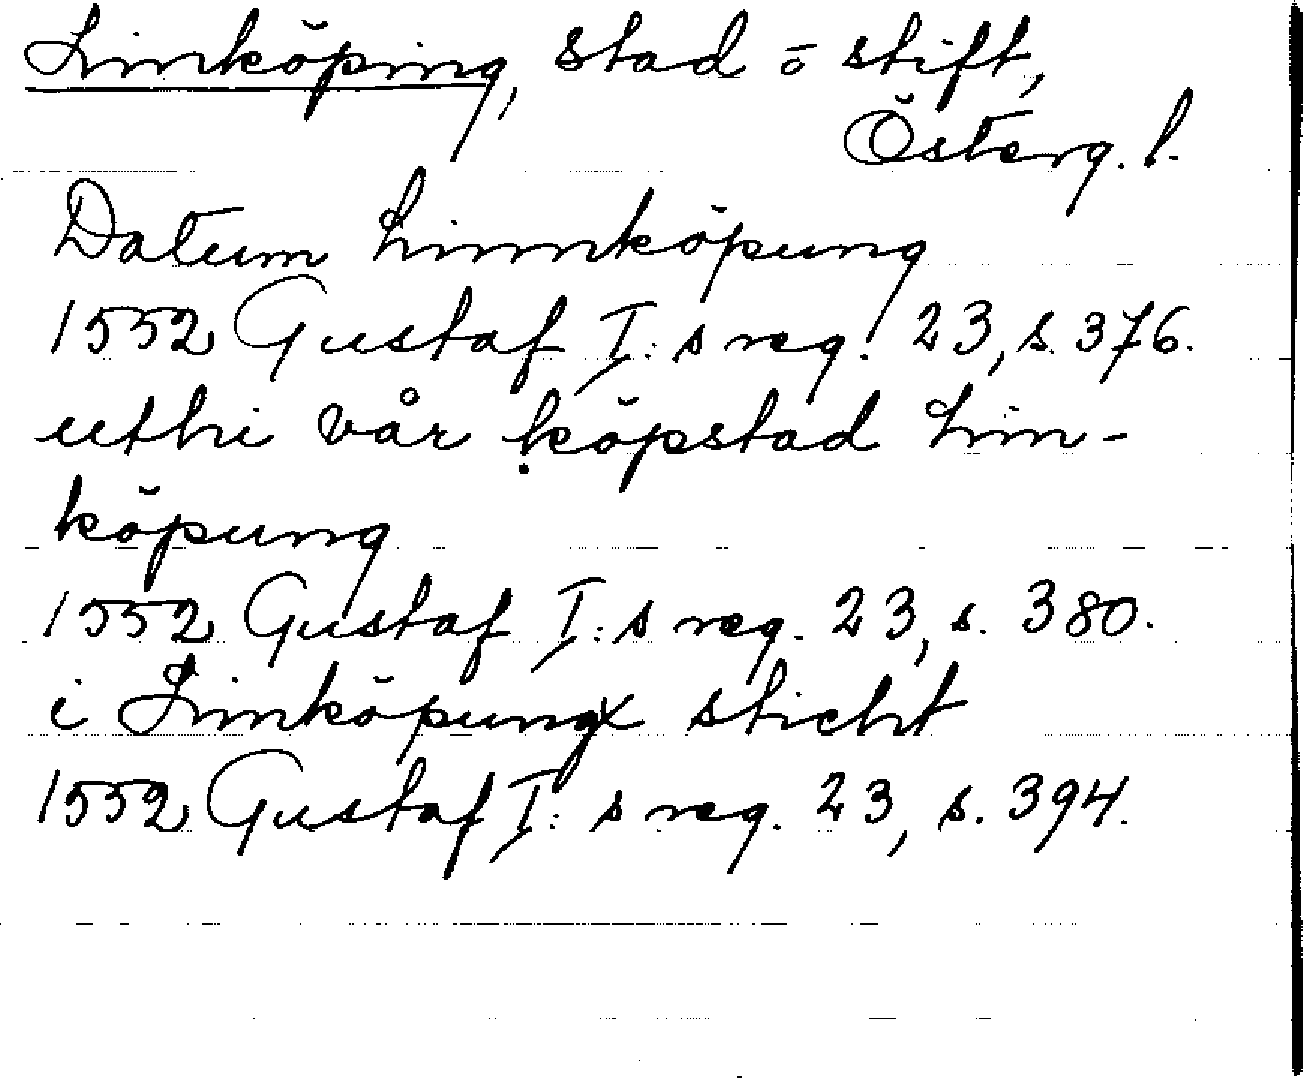 Linköping, stad ō stift,
Österg. l.
Datum Linnköpung
1552 Gustaf I: s reg. 23, s. 376.
uthi vår köpstad Lin-
köpung
1552 Gustaf I: s reg. 23, s. 380.
i Linköpungx sticht
1552 Gustaf I: s reg. 23, s. 394.